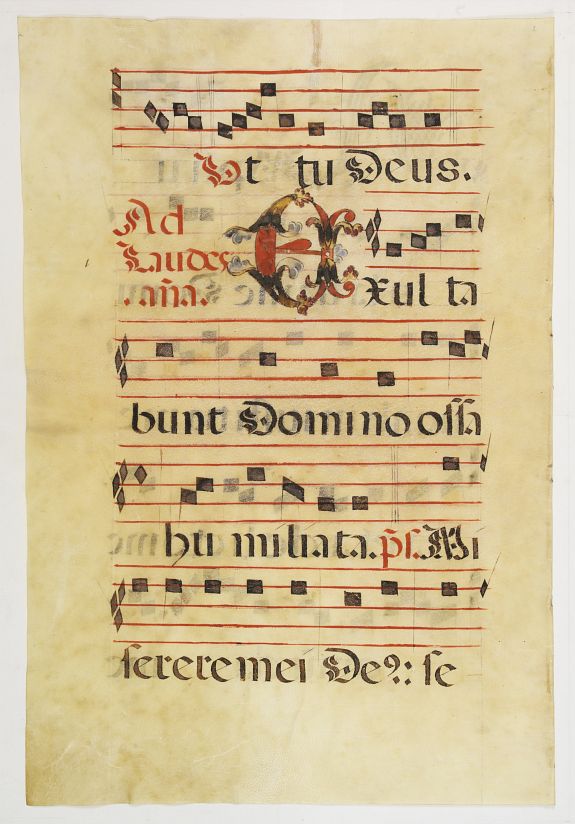 Ut tu Deus.
Ad
Laudes
.aña.
Exul ta
bunt Domino ossa
hu milia ta. ps. Mi
serere mei De9: se